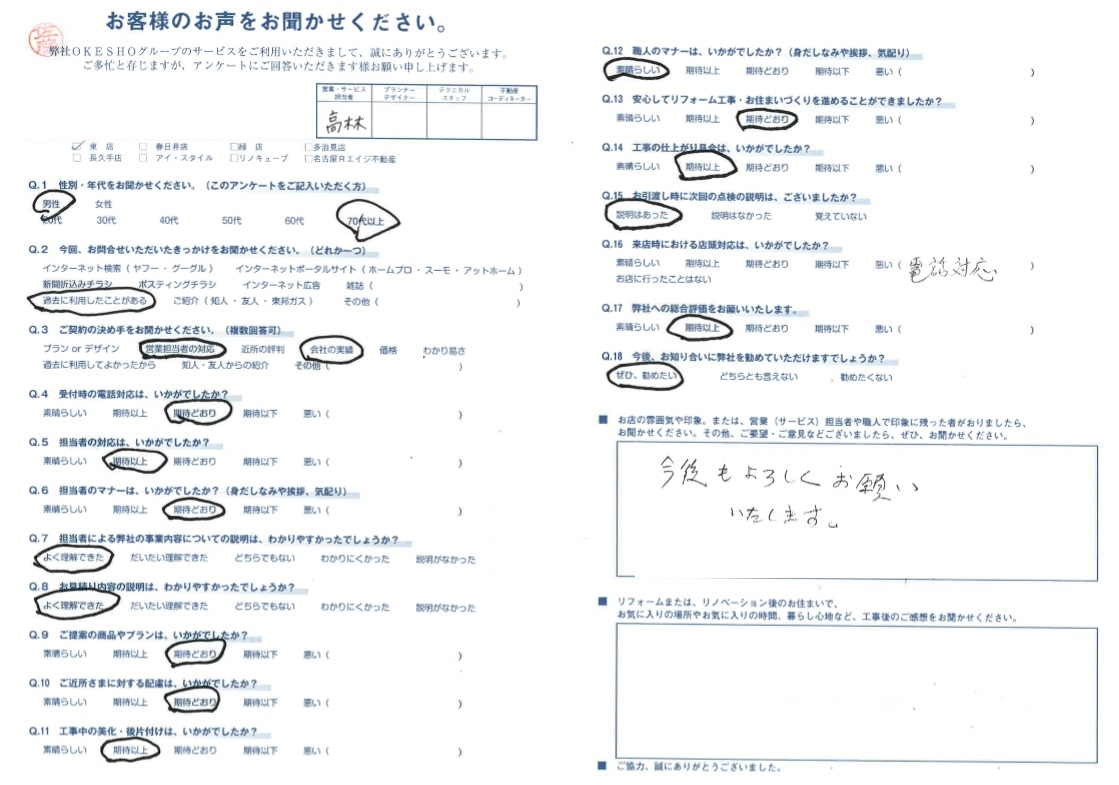 お客様のお声をお聞かせください。
弊社OKESHOグループのサービスをご利用いただきまして、誠にありがとうございます。
ご多忙と存じますが、アンケートにご回答いただきます様お願い申し上げます。
営業・サービス担当者 プランナーデザイナー テクニカルスタッフ 不動産コーディネーター
高林
☑ 東 店 □ 春日井店 □緑 店 □多治見店
□ 長久手店 □ アイ・スタイル □リノキューブ □名古屋Rエイジ不動産
Q.1 性別・年代をお聞かせください。（このアンケートをご記入いただく方）
男性 女性
20代 30代 40代 50代 60代 70代以上
Q.2 今回、お問合せいただいたきっかけをお聞かせください。（どれか一つ）
インターネット検索（ ヤフー ・ グーグル ） インターネットポータルサイト（ ホームプロ ・ スーモ ・ アットホーム ）
新聞折込みチラシ ポスティングチラシ インターネット広告 雑誌（ ）
過去に利用したことがある ご紹介（ 知人 ・ 友人 ・ 東邦ガス ） その他（ ）
Q.3 ご契約の決め手をお聞かせください。（複数回答可）
プラン or デザイン 営業担当者の対応 近所の評判 会社の実績 価格 わかり易さ
過去に利用してよかったから 知人・友人からの紹介 その他（ ）
Q.4 受付時の電話対応は、いかがでしたか？
素晴らしい 期待以上 期待どおり 期待以下 悪い（ ）
Q.5 担当者の対応は、いかがでしたか？
素晴らしい 期待以上 期待どおり 期待以下 悪い（ ）
Q.6 担当者のマナーは、いかがでしたか？（身だしなみや挨拶、気配り）
素晴らしい 期待以上 期待どおり 期待以下 悪い（ ）
Q.7 担当者による弊社の事業内容についての説明は、わかりやすかったでしょうか？
よく理解できた だいたい理解できた どちらでもない わかりにくかった 説明がなかった
Q.8 お見積り内容の説明は、わかりやすかったでしょうか？
よく理解できた だいたい理解できた どちらでもない わかりにくかった 説明がなかった
Q.9 ご提案の商品やプランは、いかがでしたか？
素晴らしい 期待以上 期待どおり 期待以下 悪い（ ）
Q.10 ご近所さまに対する配慮は、いかがでしたか？
素晴らしい 期待以上 期待どおり 期待以下 悪い（ ）
Q.11 工事中の美化・後片付けは、いかがでしたか？
素晴らしい 期待以上 期待どおり 期待以下 悪い（ ）
Q.12 職人のマナーは、いかがでしたか？（身だしなみや挨拶、気配り）
素晴らしい 期待以上 期待どおり 期待以下 悪い（ ）
Q.13 安心してリフォーム工事・お住まいづくりを進めることができましたか？
素晴らしい 期待以上 期待どおり 期待以下 悪い（ ）
Q.14 工事の仕上がり具合は、いかがでしたか？
素晴らしい 期待以上 期待どおり 期待以下 悪い（ ）
Q.15 お引渡し時に次回の点検の説明は、ございましたか？
説明はあった 説明はなかった 覚えていない
Q.16 来店時における店頭対応は、いかがでしたか？
素晴らしい 期待以上 期待どおり 期待以下 悪い（ 電話対応 ）
お店に行ったことはない
Q.17 弊社への総合評価をお願いいたします。
素晴らしい 期待以上 期待どおり 期待以下 悪い（ ）
Q.18 今後、お知り合いに弊社を勧めていただけますでしょうか？
ぜひ、勧めたい どちらとも言えない 勧めたくない
■ お店の雰囲気や印象。または、営業（サービス）担当者や職人で印象に残った者がおりましたら、
お聞かせください。その他、ご要望・ご意見などございましたら、ぜひ、お聞かせください。
今後もよろしくお願い
いたします。
■ リフォームまたは、リノベーション後のお住まいで、
お気に入りの場所やお気に入りの時間、暮らし心地など、工事後のご感想をお聞かせください。
■ ご協力、誠にありがとうございました。